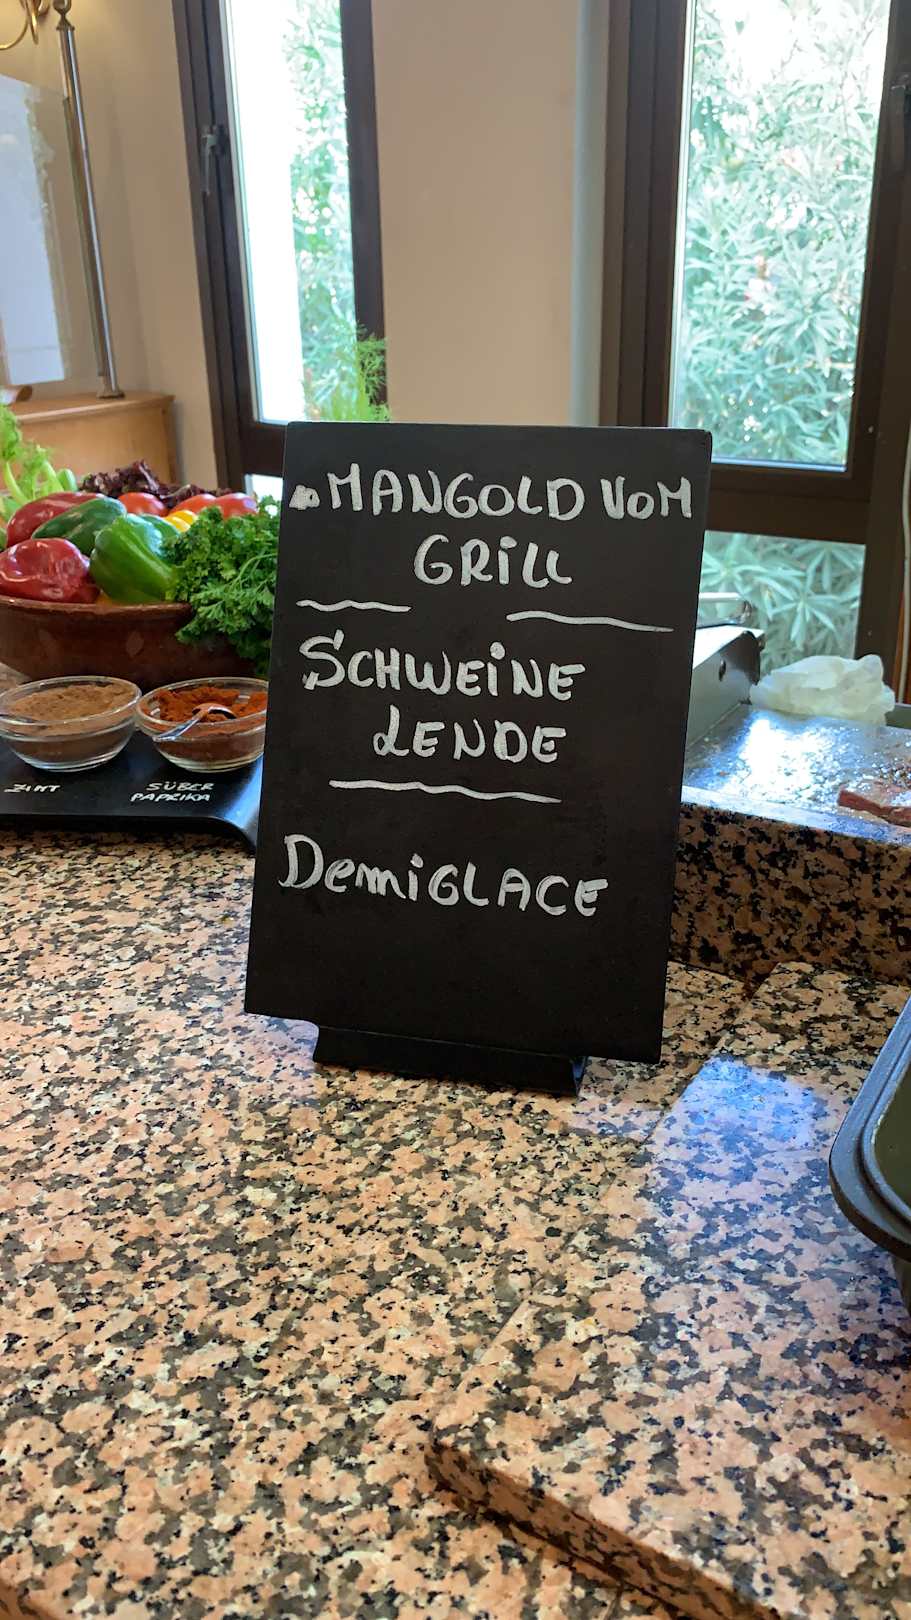 MANGOLD VOM
GRiLL
SCHWEiNE
LENDE
DemiGLACE
ZIMT
SÜßER
PAPRIKA